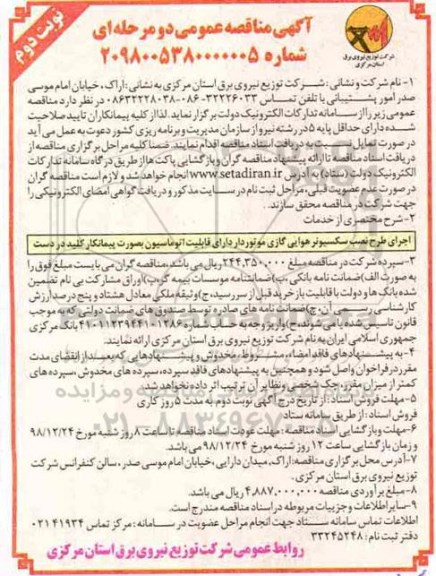 نوبت دوم
آگهی مناقصه عمومی دو مرحله ای
شماره ۲۰۹۸۰۰۵۳۸۰۰۰۰۰۰۵
شرکت توزیع نیروی برق
استان مرکزی
۱- نام شرکت و نشانی: شرکت توزیع نیروی برق استان مرکزی به نشانی: اراک، خیابان امام موسی
صدر امور پشتیبانی با تلفن تماس ۳۲۲۲۶۰۳۳-۰۸۶ ۰۸۶۳۲۲۲۸۰۳۸ در نظر دارد مناقصه
عمومی زیر را از سامانه تدارکات الکترونیک دولت برگزار نماید. لذا از کلیه پیمانکاران تایید صلاحیت
شده دارای حداقل پایه ۵ در رشته نیرو از سازمان مدیریت و برنامه ریزی کشور دعوت به عمل می آید
در صورت تمایل نسبت به دریافت اسناد مناقصه اقدام نمایند. ضمنا کلیه مراحل برگزاری مناقصه از
دریافت اسناد مناقصه تا ارائه پیشنهاد مناقصه گران و بازگشایی پاکت ها از طریق درگاه سامانه تدارکات
الکترونیک دولت (ستاد) به آدرس www.setadiran.ir انجام خواهد شد و لازم است مناقصه گران
در صورت عدم عضویت قبلی، مراحل ثبت نام در سایت مذکور و دریافت گواهی امضای الکترونیکی را
جهت شرکت در مناقصه محقق سازند.
۲- شرح مختصری از خدمات
اجرای طرح نصب سکسیونر هوایی گازی موتوردار دارای قابلیت اتوماسیون بصورت پیمانکار کلید در دست
۳- سپرده شرکت در مناقصه مبلغ ۲۴۴,۳۵۰,۰۰۰ ریال می باشد. مناقصه گران می بایست مبلغ فوق را
به صورت الف) ضمانت نامه بانکی ب) ضمانتنامه موسسات بیمه گر ج) اوراق مشارکت بی نام تضمین
شده بانک ها و دولت با قابلیت باز خرید قبل از سررسید، ح) وثیقه ملکی معادل هشتاد و پنج درصد ارزش
کارشناسی رسمی آن، چ) ضمانت نامه های صادره توسط صندوق های ضمانت دولتی که به موجب
قانون تاسیس شده یا می شوند، خ) واریز وجه به حساب بانک مرکزی
جمهوری اسلامی ایران به نام شرکت توزیع نیروی برق استان مرکزی ارائه نمایند.
۴- به پیشنهادهای فاقد امضاء، مشروط، مخدوش و پیشنهادهایی که بعد از انقضای مدت
مقرر در فراخوان واصل شود و همچنین به پیشنهادهای فاقد سپرده، سپرده های مخدوش، سپرده های
کمتر از میزان مقرر، چک شخصی و نظایر آن ترتیب اثر داده نخواهد شد.
۵- مهلت فروش اسناد: از تاریخ درج آگهی نوبت دوم به مدت ۵ روز کاری
فروش اسناد: از طریق سامانه ستاد
۶- مهلت و بازگشایی اسناد مناقصه: مهلت عودت اسناد مناقصه تا ساعت ۸ روز شنبه مورخ ۹۸/۱۲/۲۴
و زمان بازگشایی ساعت ۱۲ روز شنبه مورخ ۹۸/۱۲/۲۴ می باشد.
۷- آدرس محل برگزاری مناقصه: اراک، میدان دارایی، خیابان امام موسی صدر، سالن کنفرانس شرکت
توزیع نیروی برق استان مرکزی.
۸- مبلغ برآوردی مناقصه ۴,۸۸۷,۰۰۰,۰۰۰ ریال می باشد.
۹- سایر اطلاعات و جزییات مربوطه در اسناد مناقصه مندرج است.
اطلاعات تماس سامانه ستاد جهت انجام مراحل عضویت در سامانه: مرکز تماس ۴۱۹۳۴-۰۲۱
دفتر ثبت نام: ۳۳۲۴۵۲۴۸
روابط عمومی شرکت توزیع نیروی برق استان مرکزی